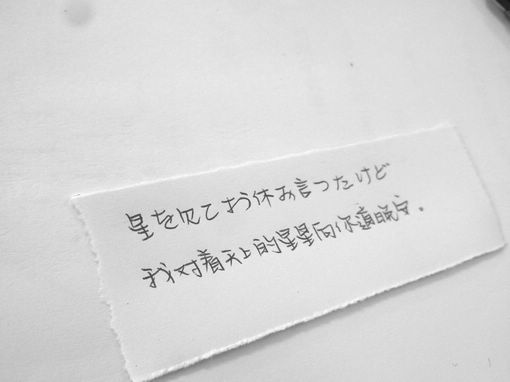 星を見ておう休み言ったけど
我对着天上的星星向你道晚安.